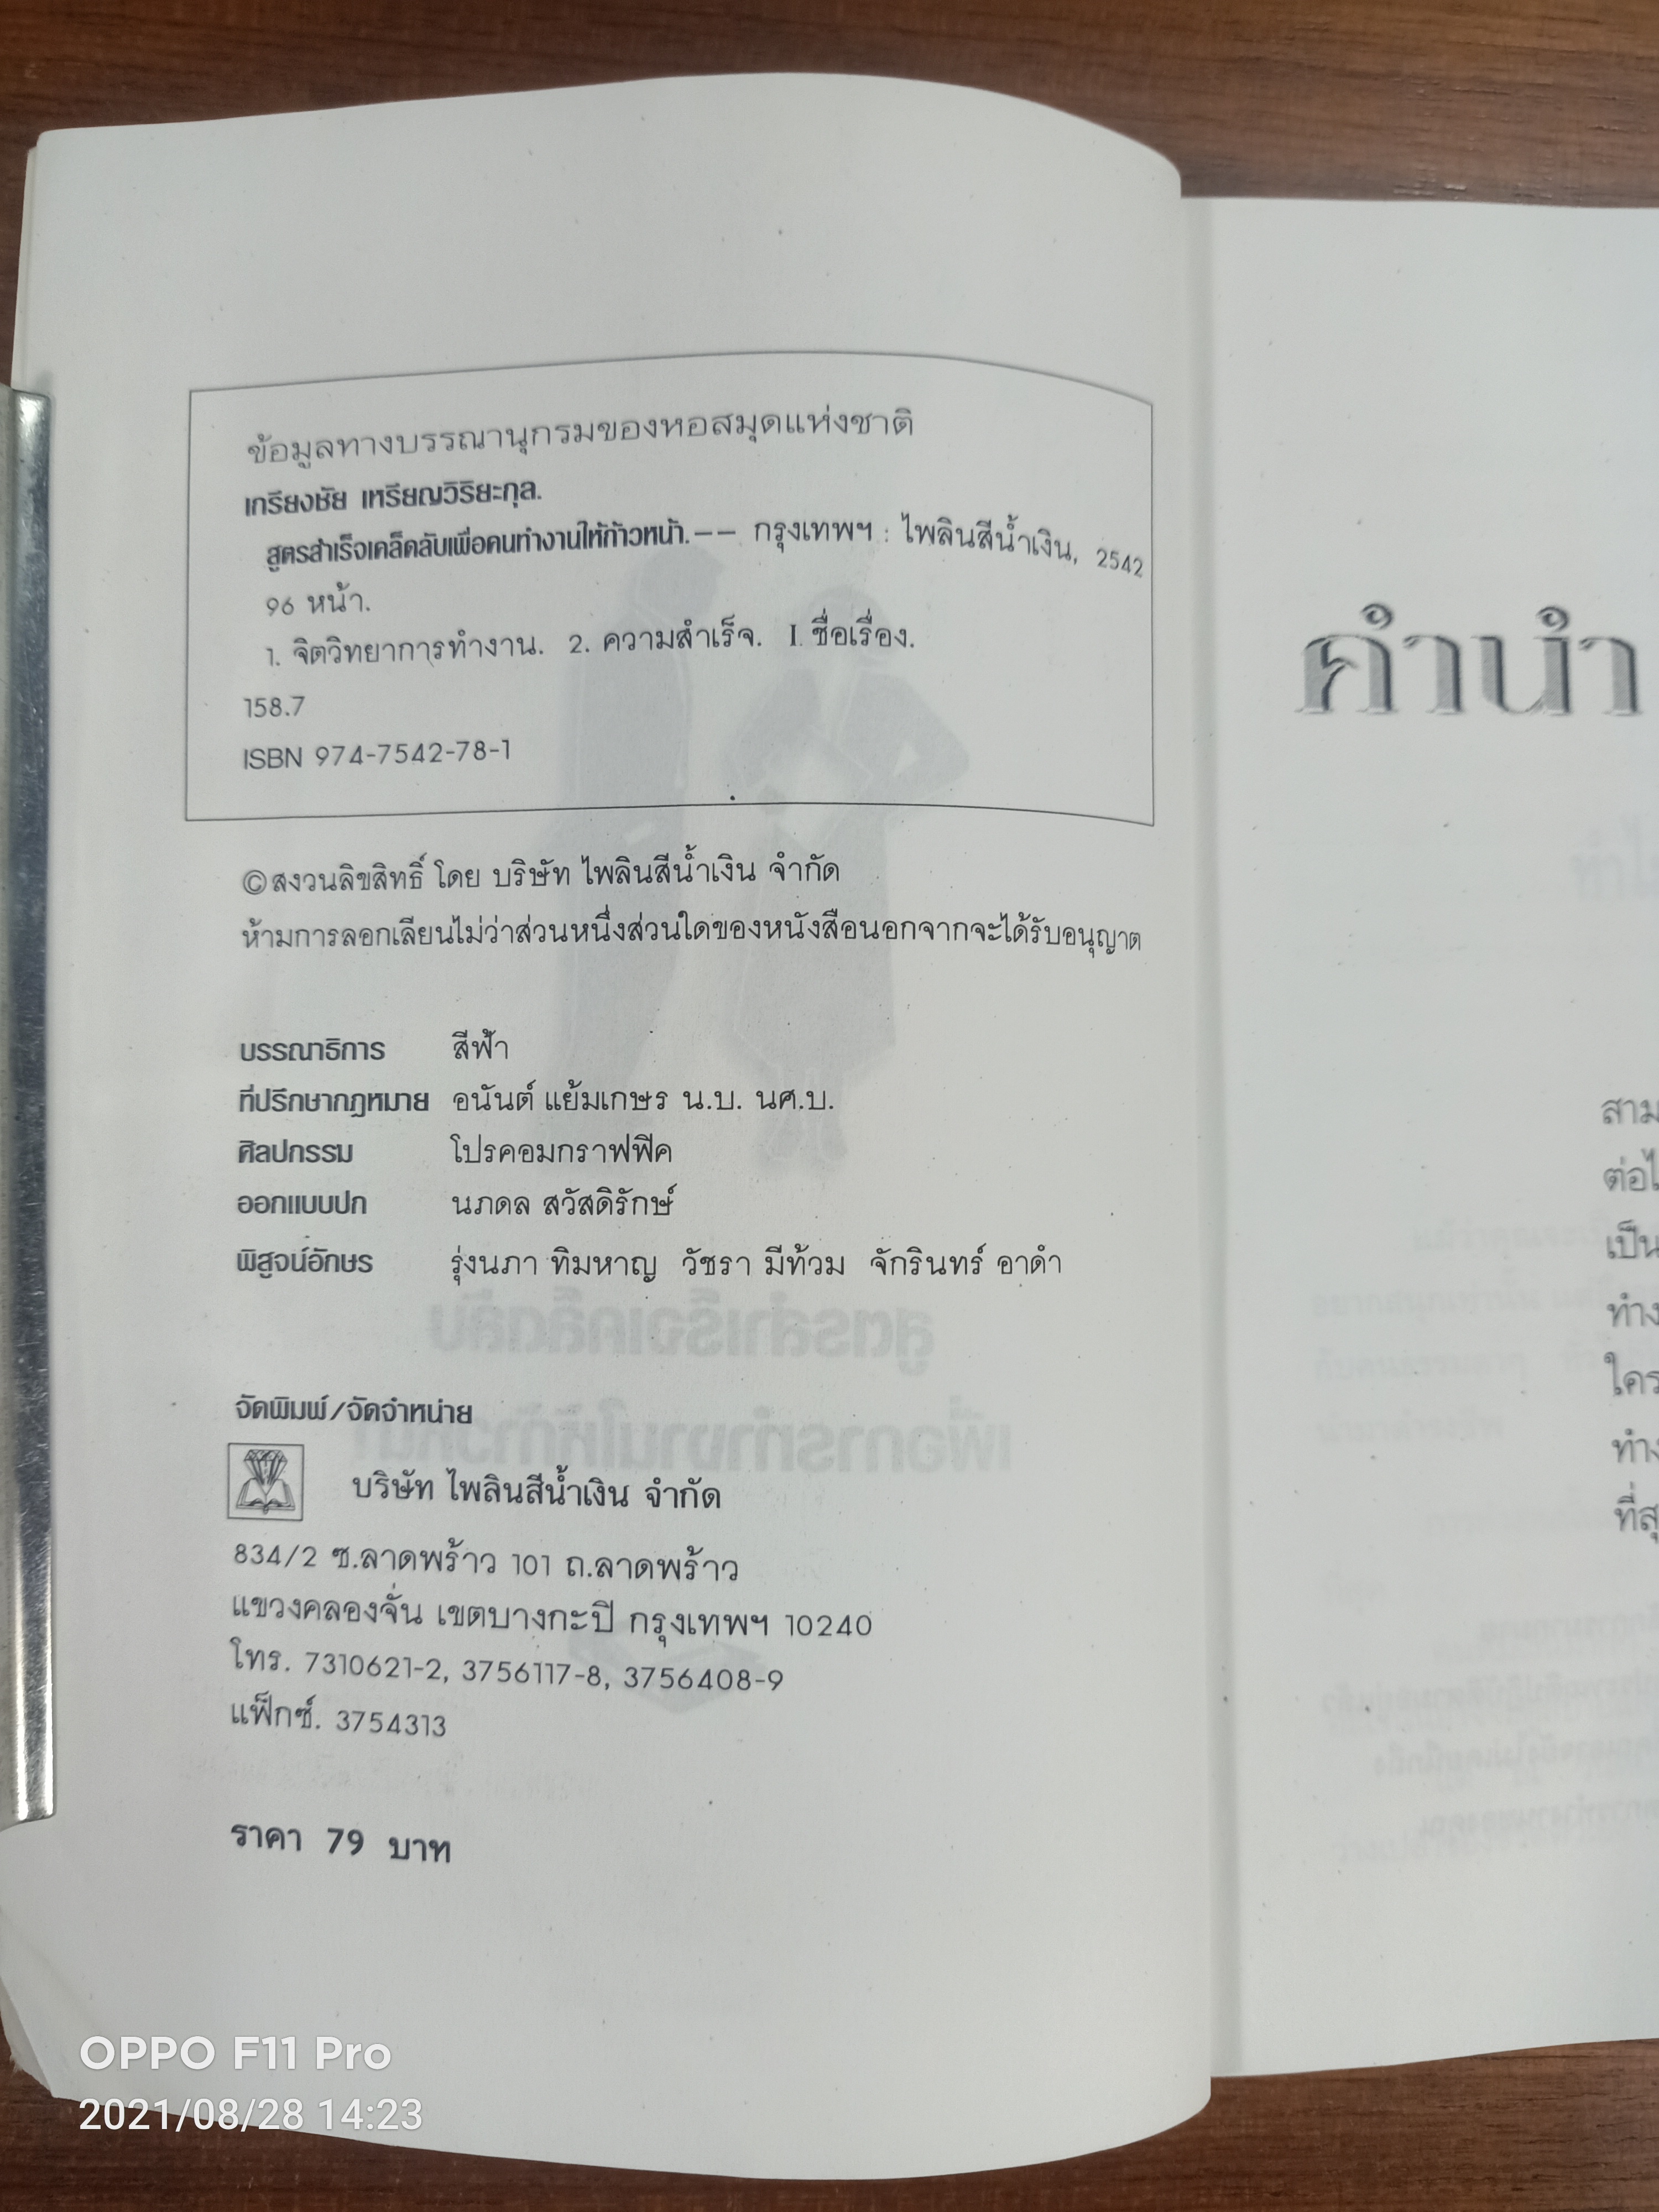 ข้อมูลทางบรรณานุกรมของหอสมุดแห่งชาติ
เกรียงชัย เหรียญวิริยะกุล.
สูตรสำเร็จเคล็ดลับเพื่อคนทำงานให้ก้าวหน้า.-- กรุงเทพฯ : ไพลินสีน้ำเงิน, 2542
96 หน้า.
1. จิตวิทยาการทำงาน. 2. ความสำเร็จ. I. ชื่อเรื่อง.
158.7
ISBN 974-7542-78-1
©สงวนลิขสิทธิ์ โดย บริษัท ไพลินสีน้ำเงิน จำกัด
ห้ามการลอกเลียนไม่ว่าส่วนหนึ่งส่วนใดของหนังสือนอกจากจะได้รับอนุญาต
บรรณาธิการ สีฟ้า
ที่ปรึกษากฎหมาย อนันต์ แย้มเกษร น.บ. นศ.บ.
ศิลปกรรม โปรคอมกราฟฟิค
ออกแบบปก นภดล สวัสดิรักษ์
พิสูจน์อักษร รุ่งนภา ทิมหาญ วัชรา มีท้วม จักรินทร์ อาดำ
จัดพิมพ์/จัดจำหน่าย
บริษัท ไพลินสีน้ำเงิน จำกัด
834/2 ซ.ลาดพร้าว 101 ถ.ลาดพร้าว
แขวงคลองจั่น เขตบางกะปิ กรุงเทพฯ 10240
โทร. 7310621-2, 3756117-8, 3756408-9
แฟ็กซ์. 3754313
ราคา 79 บาท
คำนำ
สาม
ต่อไ
เป็น
ทำง
ใคร
ทำง
ที่สุ
OPPO F11 Pro
2021/08/28 14:23